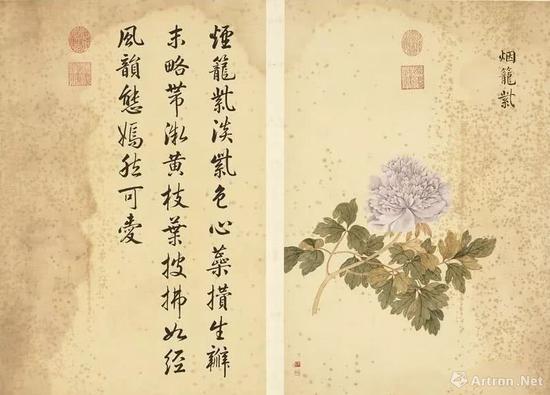 烟籠紫
煙籠紫淡紫色心蘂攢生瓣
末略帶微黃枝葉披拂如經
風韻態嫣然可愛
Artron.Net